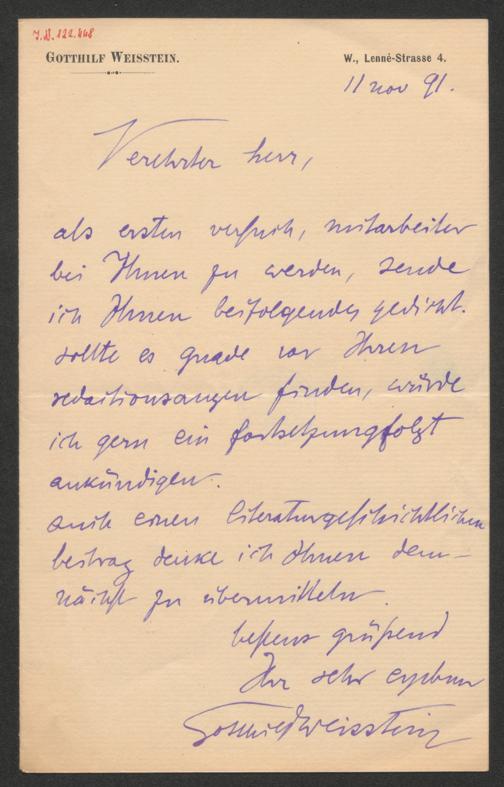 J.N. 122.448
GOTTHILF WEISSTEIN.
W., Lenné-Strasse 4.
11 nov 91.
Verehrter herr,
als ersten versuch, mitarbeiter
bei Ihnen zu werden, sende
ich Ihnen beifolgendes gedicht.
sollte es gnade vor Ihren
redactionsaugen finden, würde
ich gern ein fortsetzungfolgt
ankündigen.
auch einen literaturgeschichtlichen
beitrag denke ich Ihnen dem-
nächst zu übermitteln.
bestens grüßend
Ihr sehr ergebner
Gotthilf Weisstein